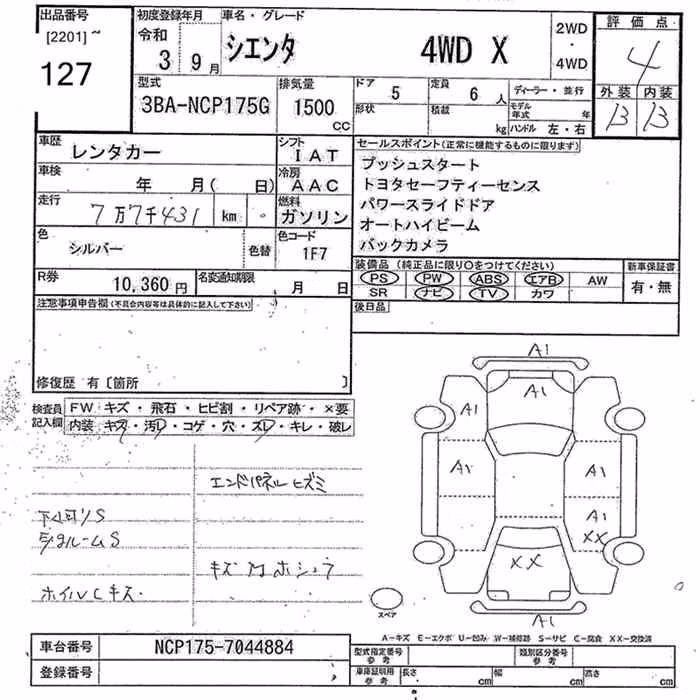 出品番号
[2201]~
127
初度登録年月
令和
3 9月
車名・グレード
シエンタ 4WD X
2WD
・
4WD
評価点
4
外装 内装
B B
型式
3BA-NCP175G
排気量
1500
CC
ドア 5
形状
定員 6人
積載 kg
ディーラー・並行
モデル年式 年
ハンドル 左・右
車歴
レンタカー
シフト
IAT
車検
年 月( 日)
冷房
AAC
走行
7万7千431 km
燃料
ガソリン
色
シルバー
色替
色コード
1F7
セールスポイント(正常に機能するものに限ります)
プッシュスタート
トヨタセーフティーセンス
パワースライドドア
オートハイビーム
バックカメラ
R券
10,360円
名変通知期限
月 日
装備品 (純正品に限り○をつけてください)
PS PW ABS エアB AW
SR ナビ TV カワ
新車保証書
有・無
注意事項申告欄(不具合内容等は具体的に記入して下さい)
後日品
修復歴 有〔箇所 〕
検査員
記入欄
FW キズ・飛石・ヒビ割・リペア跡・×要
内装 キズ・汚レ・コゲ・穴・スレ・キレ・破レ
エンドパネルヒズミ
下廻リS
ルームS
ホイルCキズ
A1
A1
A1
A1
A1
A1
XX
XX
A1
スペア
A-キズ E-エクボ U-凹み W-補修跡 S-サビ C-腐食 XX-交換済
車台番号
NCP175-7044884
登録番号
型式指定番号
参考
類別区分番号
参考
車庫証明用
参考
長さ cm
幅 cm
高さ cm